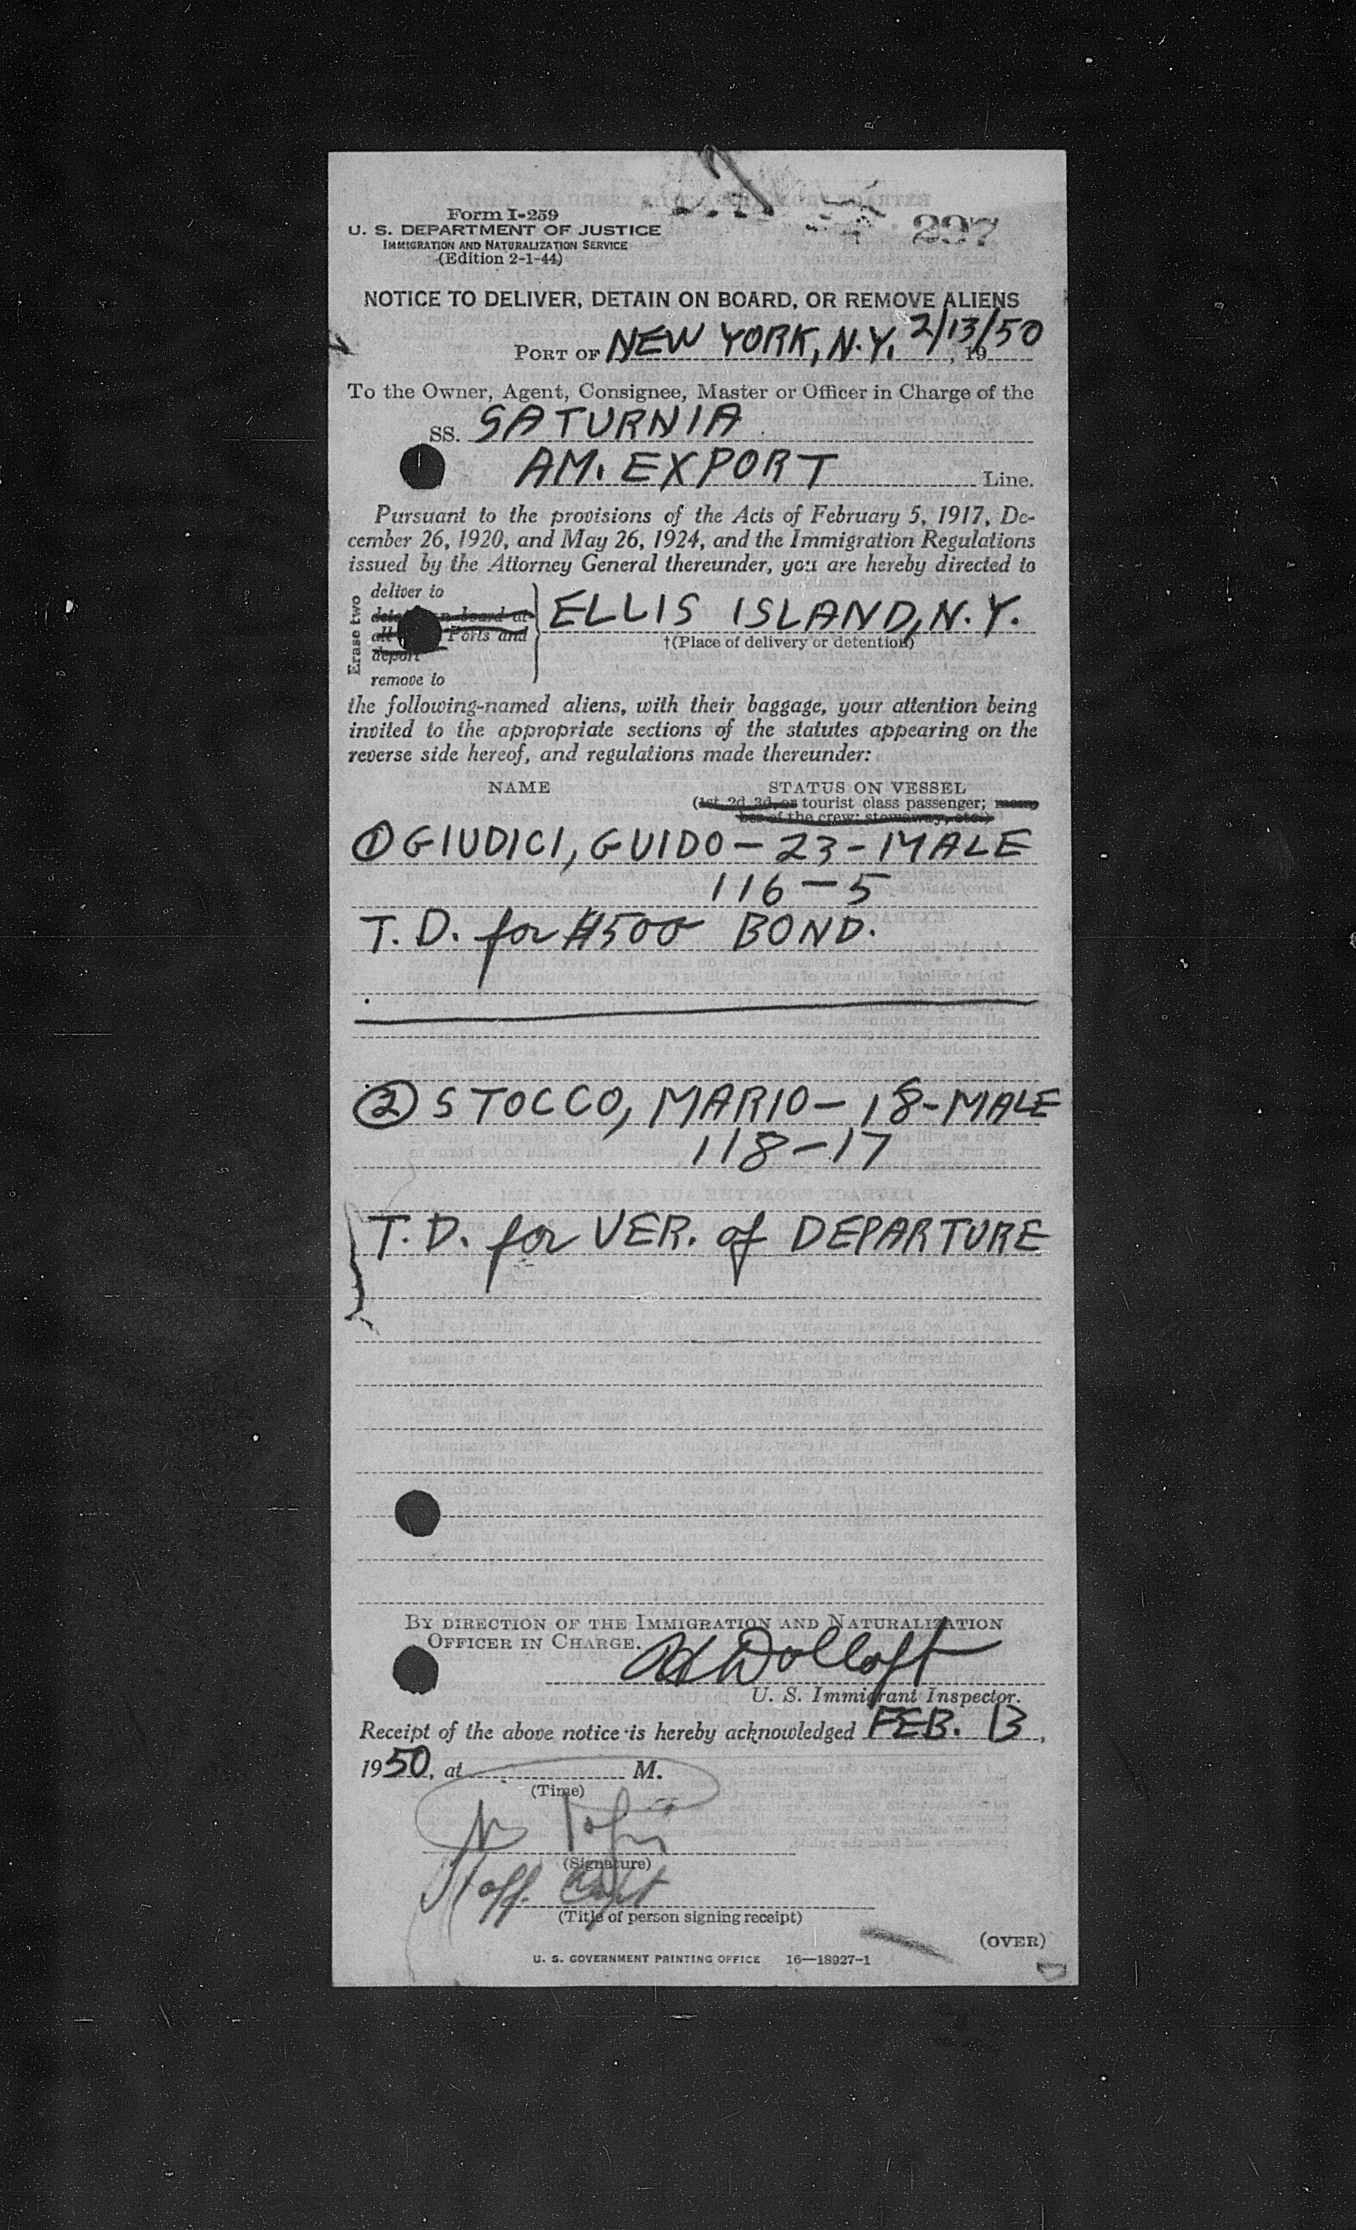 297
Form I-259
U. S. DEPARTMENT OF JUSTICE
IMMIGRATION AND NATURALIZATION SERVICE
(Edition 2-1-44)
NOTICE TO DELIVER, DETAIN ON BOARD, OR REMOVE ALIENS
PORT OF NEW YORK, N.Y. 2/13/50, 19
To the Owner, Agent, Consignee, Master or Officer in Charge of the
SS. SATURNIA
AM. EXPORT Line.
Pursuant to the provisions of the Acts of February 5, 1917, De-
cember 26, 1920, and May 26, 1924, and the Immigration Regulations
issued by the Attorney General thereunder, you are hereby directed to
Erase two
deliver to
on board at
all Ports and
deport
remove to
ELLIS ISLAND, N.Y.
†(Place of delivery or detention)
the following-named aliens, with their baggage, your attention being
invited to the appropriate sections of the statutes appearing on the
reverse side hereof, and regulations made thereunder:
NAME STATUS ON VESSEL
(1st, 2d, 3d, or tourist class passenger; mem-
ber of the crew; stowaway, etc.)
① GIUDICI, GUIDO - 23 - MALE
116 - 5
T. D. for $500 BOND.
② STOCCO, MARIO - 18 - MALE
118 - 17
T. D. for VER. of DEPARTURE
BY DIRECTION OF THE IMMIGRATION AND NATURALIZATION
OFFICER IN CHARGE.
U. S. Immigrant Inspector.
Receipt of the above notice is hereby acknowledged FEB. 13,
1950, at M.
(Time)
(Signature)
Staff Capt
(Title of person signing receipt)
(OVER)
U. S. GOVERNMENT PRINTING OFFICE 16—18927-1